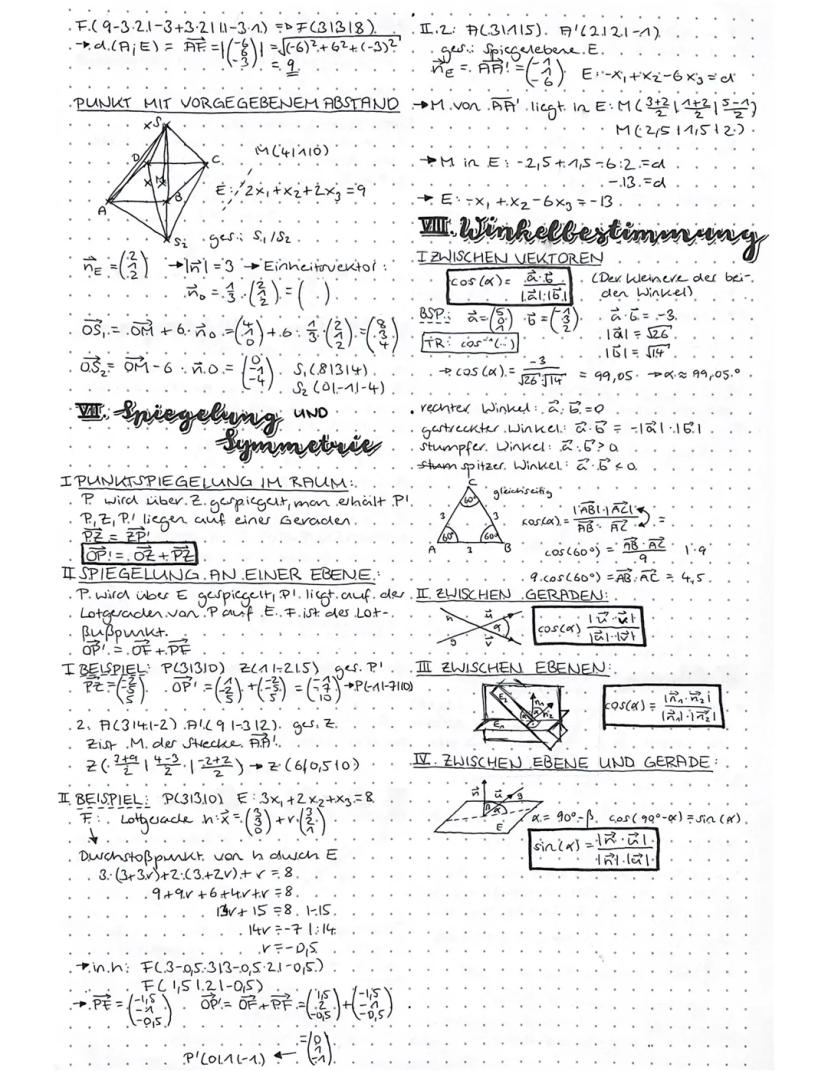 F(9-3·2|-3+3·2|1-3·1) => F(3|3|8)
→ d(A;E) = AF = |(-6 6 -3)| = √(-6)²+6²+(-3)²
= 9
PUNKT MIT VORGEGEBENEM ABSTAND
S₁
D
C
M
A
B
S₂
M(4|1|0)
E: 2x₁+x₂+2x₃=9
ges.: S₁/S₂
n_E = (2 1 2) → |n| = 3 → Einheitsvektor:
n₀ = 1/3 · (2 1 2) = ( )
OS₁ = OM + 6·n₀ = (4 1 0) + 6 · 1/3 · (2 1 2) = (8 3 4)
OS₂ = OM - 6 · n.0 = (0 -1 -4) S₁(8|3|4)
S₂(0|-1|-4)
VII. Spiegelung UND
Symmetrie
I PUNKTSPIEGELUNG IM RAUM:
P wird über Z gespiegelt, man erhält P'
P, Z, P' liegen auf einer Geraden
PZ = ZP'
OP' = OZ + PZ
II SPIEGELUNG AN EINER EBENE:
P wird über E gespiegelt, P' liegt auf der
Lotgeraden von P auf E. F ist des Lot-
fußpunkt.
OP' = OF + PF
I BEISPIEL: P(3|3|0) Z(1|-2|5) ges. P'
PZ = (-2 -5 5) OP' = (1 -2 5) + (-2 -5 5) = (-1 -7 10) → P(-1|-7|10)
2. A(3|4|-2) A'(9|-3|2) ges. Z
Z ist M der Strecke AA'
Z(3+9/2 | 4-3/2 | -2+2/2) → Z(6|0,5|0)
II BEISPIEL: P(3|3|0) E: 3x₁+2x₂+x₃=8
F: Lotgerade h: x = (3 3 0) + r·(3 2 1)
Durchstoßpunkt von h durch E
3·(3+3r)+2·(3+2r)+r = 8
9+9r+6+4r+r = 8
14r + 15 = 8 |-15
14r = -7 |:14
r = -0,5
→ in h: F(3-0,5·3|3-0,5·2|-0,5)
F(1,5|2|-0,5)
→ PF = (-1,5 -1 -0,5) OP' = OF + PF = (1,5 2 -0,5) + (-1,5 -1 -0,5)
P'(0|1|-1) ← = (0 1 -1)
II.2: A(3|1|5) A'(2|2|-1)
ges.: Spiegelebene E
n_E = AA' = (-1 1 -6) E: -x₁+x₂-6x₃=d
→ M von AA' liegt in E: M(3+2/2 | 1+2/2 | 5-1/2)
M(2,5|1,5|2)
→ M in E: -2,5+1,5-6·2 = d
-13 = d
→ E: -x₁+x₂-6x₃ = -13
VIII. Winkelbestimmung
I ZWISCHEN VEKTOREN
cos(α) = a·b / |a|·|b|
(Der kleinere der bei-
den Winkel)
BSP.: a = (5 0 1) b = (-1 3 2) a·b = -3
|a| = √26
TR: cos⁻¹(..)
|b| = √14
→ cos(α) = -3 / √26·√14 = 99,05 → α ≈ 99,05°
rechter Winkel: a·b = 0
gestreckter Winkel: a·b = -|a|·|b|
stumpfer Winkel: a·b > 0
stum spitzer Winkel: a·b < 0
C
gleichseitig
60°
3
3
60°
60°
A
3
B
cos(α) = |AB|·|AC| / AB · AC =
cos(60°) = AB·AC / 9 |·9
9·cos(60°) = AB·AC = 4,5
II ZWISCHEN GERADEN:
h
u
α
g
v
cos(α) = |u·v| / |u|·|v|
III ZWISCHEN EBENEN:
E₂
n₁
α
n₂
E₁
cos(α) = |n₁·n₂| / |n₁|·|n₂|
IV. ZWISCHEN EBENE UND GERADE:
n
u
g
β
α
E
α = 90°-β cos(90°-α) = sin(α)
sin(α) = |n·u| / |n|·|u|